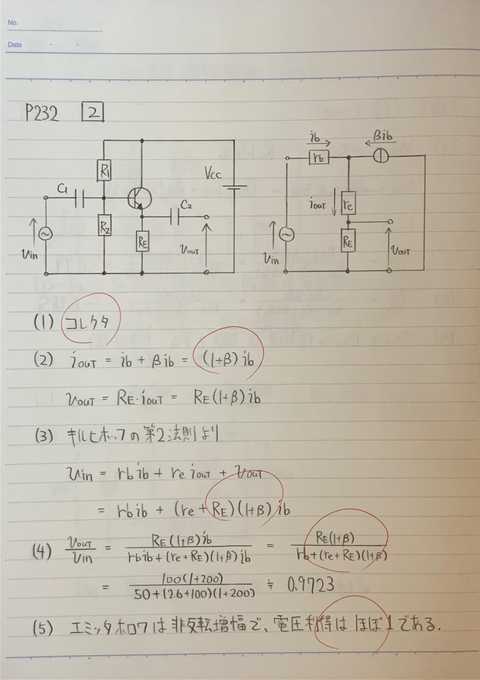 No.
Date
P232 2
C1 R1 R2 RE C2 Vcc vin vout
ib βib rb iout re RE vin vout
(1) コレクタ
(2) iout = ib + βib = (1+β)ib
vout = RE·iout = RE(1+β)ib
(3) キルヒホッフの第2法則より
vin = rbib + re iout + vout
= rbib + (re+RE)(1+β)ib
(4) vout/vin = RE(1+β)ib / rbib+(re+RE)(1+β)ib = RE(1+β) / rb+(re+RE)(1+β)
= 100(1+200) / 50+(2.6+100)(1+200) ≒ 0.9723
(5) エミッタホロワは非反転増幅で、電圧利得はほぼ1である.